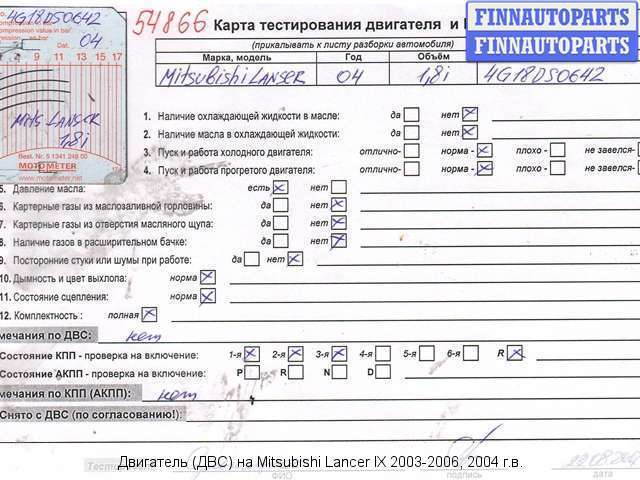 4G18DS0642
Compression value in bar
Dat. 04
9 11 13 15 17
Mits LANSER
1,8i
Best. Nr. 5 1341 248 00
MOTOMETER
www.motometer.de
54866 Карта тестирования двигателя и
FINNAUTOPARTS
FINNAUTOPARTS
(прикалывать к листу разборки автомобиля)
Марка, модель Год Объём
Mitsubishi LANSER 04 1,8i 4G18DS0642
1. Наличие охлаждающей жидкости в масле: да нет
2. Наличие масла в охлаждающей жидкости: да нет
3. Пуск и работа холодного двигателя: отлично- норма - плохо - не завелся-
4. Пуск и работа прогретого двигателя: отлично- норма - плохо - не завелся-
5. Давление масла: есть нет
6. Картерные газы из маслозаливной горловины: да нет
7. Картерные газы из отверстия масляного щупа: да нет
8. Наличие газов в расширительном бачке: да нет
9. Посторонние стуки или шумы при работе: да нет
10. Дымность и цвет выхлопа: норма
11. Состояние сцепления: норма
12. Комплектность: полная
мечания по ДВС: нет
Состояние КПП - проверка на включение: 1-я 2-я 3-я 4-я 5-я 6-я R
Состояние АКПП - проверка на включение: P R N D
мечания по КПП (АКПП): нет
Снято с ДВС (по согласованию!):
Двигатель (ДВС) на Mitsubishi Lancer IX 2003-2006, 2004 г.в.
ФИО подпись дата